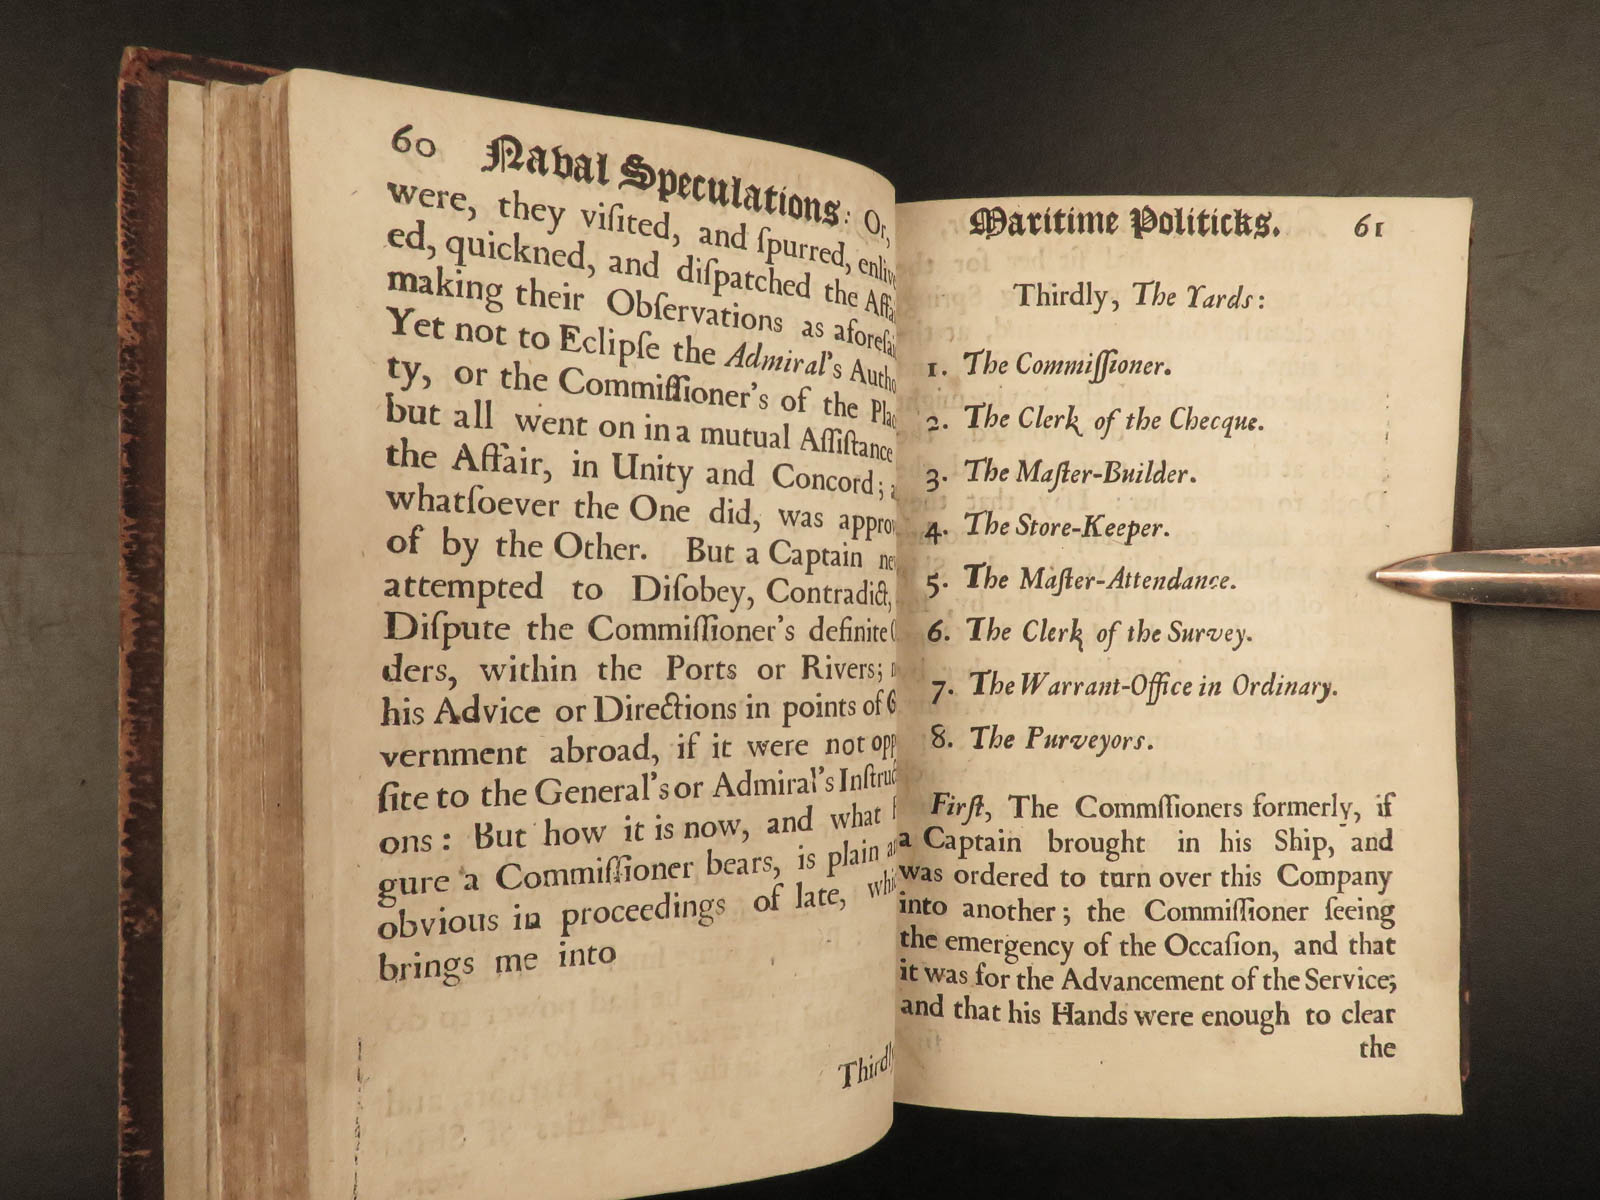 60 Naval Speculations: Or,
were, they viſited, and ſpurred, enliv
ed, quickned, and diſpatched the Affa
making their Obſervations as aforeſai
Yet not to Eclipſe the Admiral's Autho
ty, or the Commiſſioner's of the Plac
but all went on in a mutual Aſſiſtance
the Affair, in Unity and Concord; a
whatſoever the One did, was appro
of by the Other. But a Captain ne
attempted to Diſobey, Contradict,
Diſpute the Commiſſioner's definite O
ders, within the Ports or Rivers; n
his Advice or Directions in points of G
vernment abroad, if it were not opp
ſite to the General's or Admiral's Inſtruc
ons: But how it is now, and what f
gure a Commiſſioner bears, is plain a
obvious in proceedings of late, whi
brings me into
Thirdly
Maritime Politicks. 61
Thirdly, The Yards:
1. The Commiſſioner.
2. The Clerk of the Checque.
3. The Maſter-Builder.
4. The Store-Keeper.
5. The Maſter-Attendance.
6. The Clerk of the Survey.
7. The Warrant-Office in Ordinary.
8. The Purveyors.
Firſt, The Commſſioners formerly, if
a Captain brought in his Ship, and
was ordered to turn over this Company
into another; the Commiſſioner ſeeing
the emergency of the Occaſion, and that
it was for the Advancement of the Service;
and that his Hands were enough to clear
the